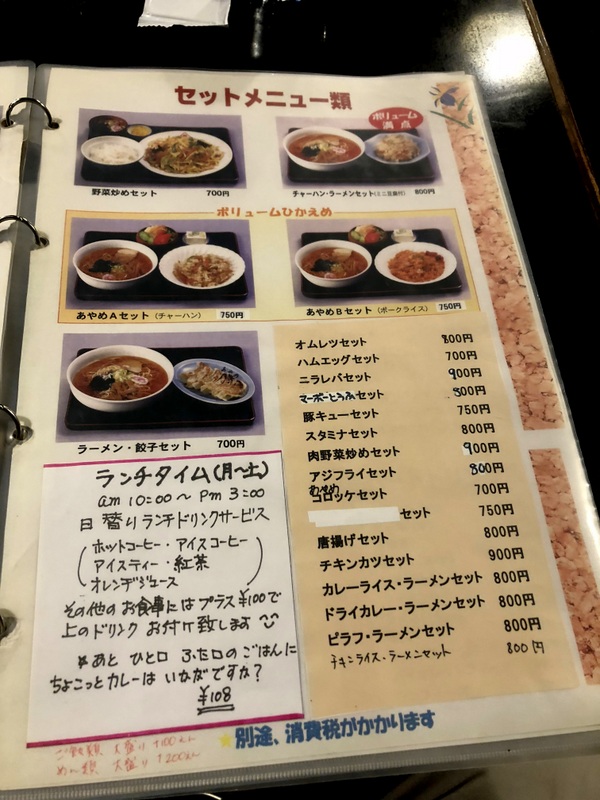 セットメニュー類
ボリューム
満点
野菜炒めセット 700円
チャーハン・ラーメンセット(ミニ豆腐付) 800円
ボリュームひかえめ
あやめAセット(チャーハン) 750円
あやめBセット(ポークライス) 750円
ラーメン・餃子セット 700円
オムレツセット 800円
ハムエッグセット 700円
ニラレバセット 900円
マーボーとうふセット 800円
豚キューセット 750円
スタミナセット 800円
肉野菜炒めセット 900円
アジフライセット 800円
あやめ
コロッケセット 700円
セット 750円
唐揚げセット 800円
チキンカツセット 900円
カレーライス・ラーメンセット 800円
ドライカレー・ラーメンセット 800円
ピラフ・ラーメンセット 800円
チキンライス・ラーメンセット 800円
ランチタイム(月〜土)
am 10:00 〜 Pm 3:00
日替りランチドリンクサービス
ホットコーヒー・アイスコーヒー
アイスティー・紅茶
オレンヂジュース
その他のお食事にはプラス¥100で
上のドリンクお付け致します
*あと ひと口 ふた口のごはんに
ちょこっとカレーは いかがですか?
¥108
★別途、消費税がかかります
大盛り +100えん
めん類 大盛り +200えん